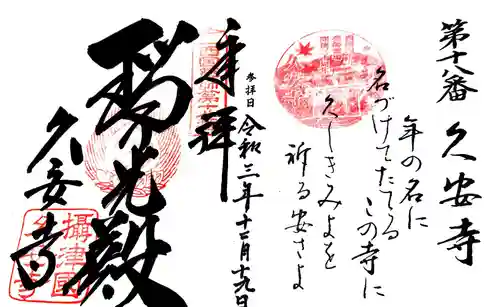 第十八番 久安寺
年の名に
名づけてたてる
この寺に
久しきみよを
祈る安さよ
参拝日 令和三年十二月十九日
奉拝
光殿
久安寺
攝津國
久安寺